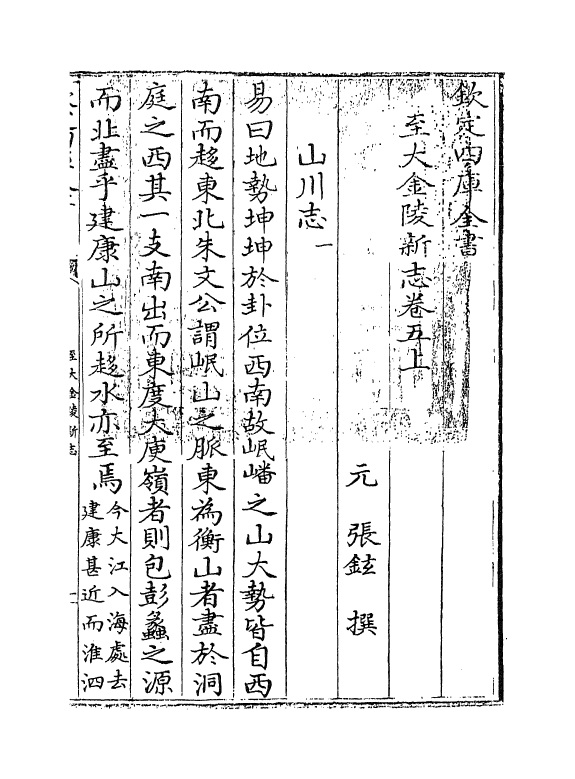 欽定四庫全書
至大金陵新志卷五上
元 張鉉 撰
山川志一
易曰地勢坤坤於卦位西南故岷嶓之山大勢皆自西
南而趍東北朱文公謂岷山之脈東為衡山者盡於洞
庭之西其一支南出而東度大庾嶺者則包彭蠡之源
而北盡乎建康山之所趍水亦至焉今大江入海處去
建康甚近而淮泗
至大金陵新志